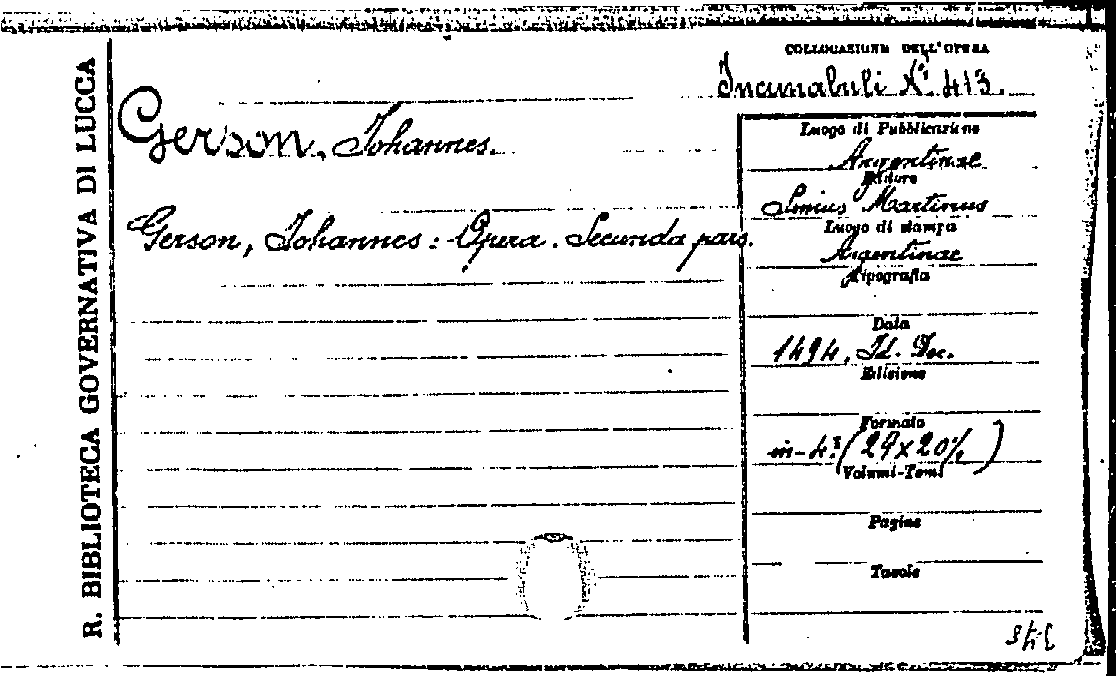 R. BIBLIOTECA GOVERNATIVA DI LUCCA
COLLOCAZIONE DELL'OPERA
Incunabuli N.° 413.
Gerson, Johannes.
Gerson, Johannes: Opera. Secunda pars.
Luogo di Pubblicazione
Argentinae
Editore
Martinus
Luogo di stampa
Argentinae
Tipografia
Data
1494, Id. Dec.
Edizione
Formato
in-4° (29x20½)
Volumi-Tomi
Pagine
Tavole